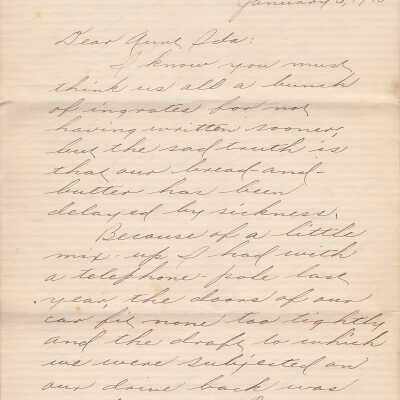 January
Dear Aunt Ida:
I know you must
think us all a bunch
of ingrates for not
having written sooner,
but the sad truth is
that our bread-and-
butter has been
delayed by sickness.
Because of a little
mix-up I had with
a telephone-pole last
year, the doors of our
car fit none too tightly
and the draft to which
we were subjected on
our drive back was